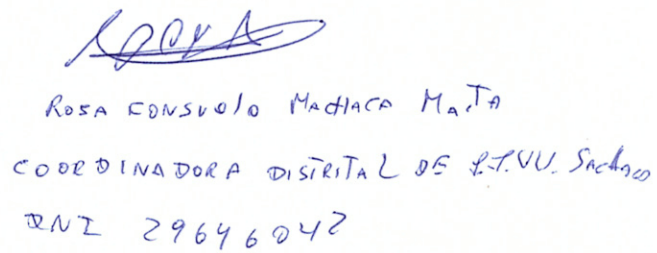 ROSA CONSUELO MACHACA MAITA
COORDINADORA DISTRITAL DE JJ.VV. SACHACA
DNI 29646042